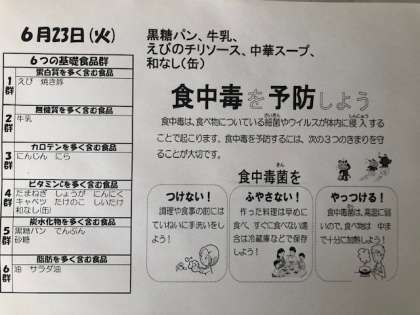 6月23日(火)
6つの基礎食品群
1群
蛋白質を多く含む食品
えび 焼き豚
2群
無機質を多く含む食品
牛乳
3群
カロテンを多く含む食品
にんじん にら
4群
ビタミンCを多く含む食品
たまねぎ しょうが にんにく
キャベツ たけのこ しいたけ
和なし(缶)
5群
炭水化物を多く含む食品
黒糖パン でんぷん
砂糖
6群
脂肪を多く含む食品
油 サラダ油
黒糖パン、牛乳、
えびのチリソース、中華スープ、
和なし(缶)
食中毒を予防しよう
食中毒は、食べ物についている細菌やウイルスが体内に侵入する
ことで起こります。食中毒を予防するには、次の3つのきまりを守
ることが大切です。
食中毒菌を
つけない!
調理や食事の前には
ていねいに手洗いをし
よう!
ふやさない!
作った料理は早めに
食べ、すぐに食べない場
合は冷蔵庫などで保存
しよう!
やっつける!
食中毒菌は、高温に弱
いので、食べ物は 中ま
で十分に加熱しよう!